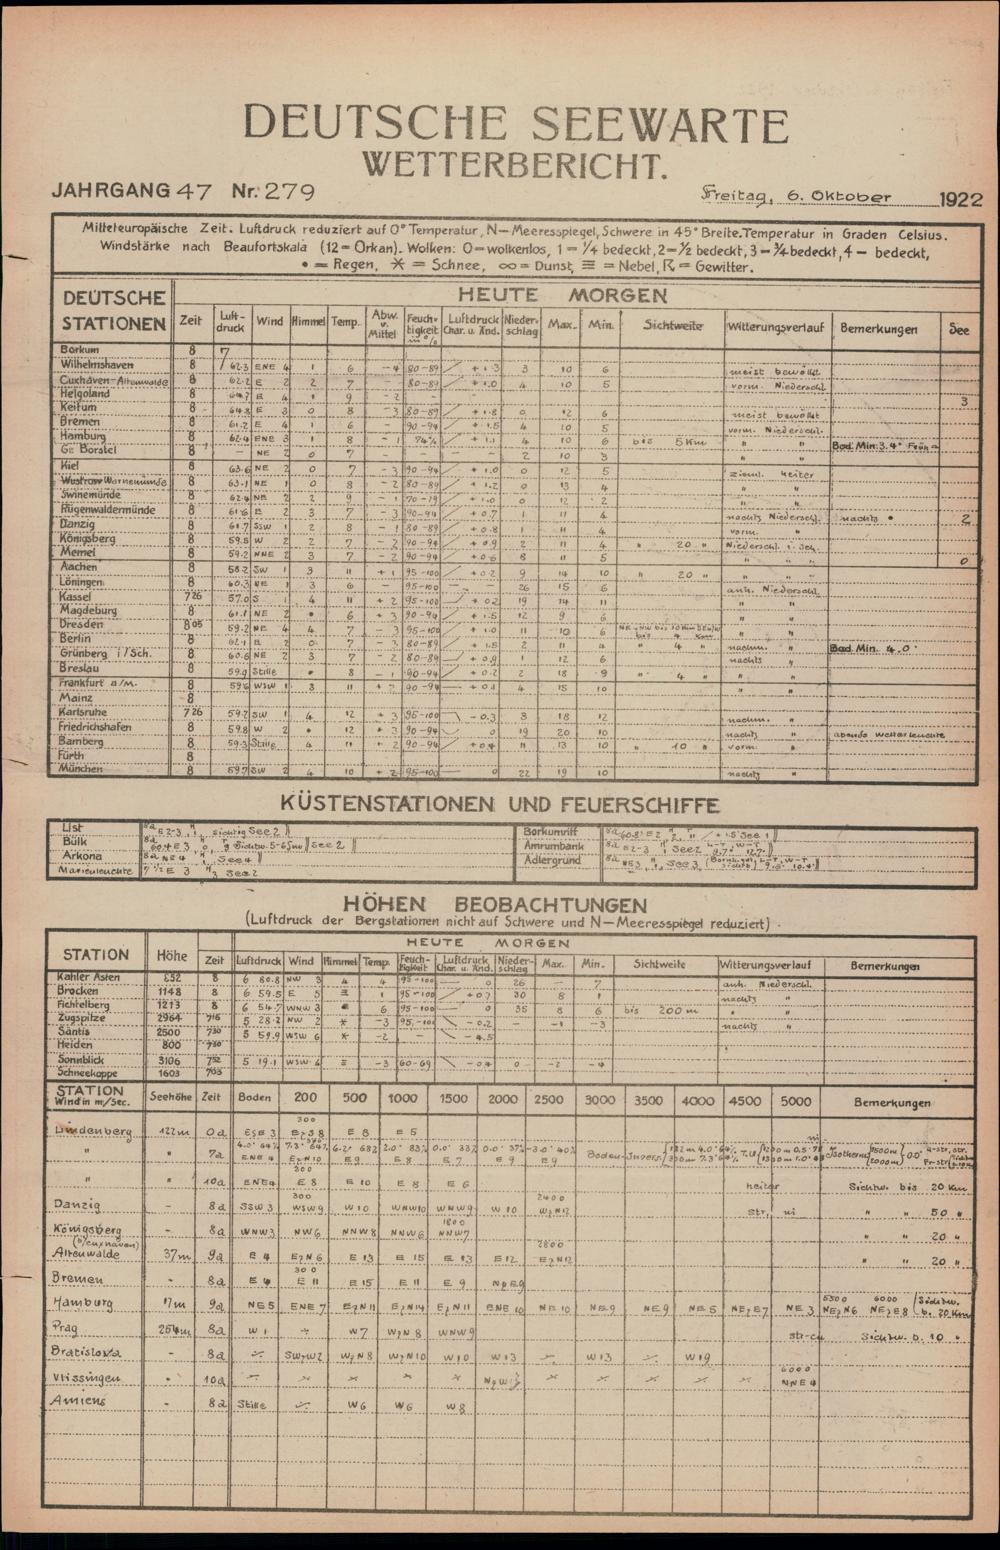 DEUTSCHE SEEWARTE
WETTERBERICHT.
JAHRGANG 47 Nr. 279 Freitag, 6. Oktober 1922
Mitteleuropäische Zeit. Luftdruck reduziert auf 0° Temperatur, N—Meeresspiegel, Schwere in 45° Breite. Temperatur in Graden Celsius.
Windstärke nach Beaufortskala (12 = Orkan). Wolken: 0=wolkenlos, 1 = ¼ bedeckt, 2=½ bedeckt, 3=¾ bedeckt, 4 — bedeckt,
• = Regen, ✱ = Schnee, ∞ = Dunst, ≡ = Nebel, R = Gewitter.
DEUTSCHE STATIONEN HEUTE MORGEN
Zeit Luft-druck Wind Himmel Temp. Abw. v. Mittel Feuch-tigkeit in % Luftdruck Char. u. Änd. Nieder-schlag Max. Min. Sichtweite Witterungsverlauf Bemerkungen See
Borkum 8 7
Wilhelmshaven 8 62.3 ENE 4 1 6 -4 80-89 +1.3 3 10 6 meist bewölkt
Cuxhaven-Altenwalde 8 62.2 E 2 2 7 - 80-89 +1.0 4 10 5 vorm. Niederschl.
Helgoland 8 E 4 1 9 -2 3
Keitum 8 64.8 E 3 0 8 -3 80-89 +1.8 0 12 6 meist bewölkt
Bremen 8 61.2 E 4 1 6 - 90-94 +1.5 4 10 5 vorm. Niederschl.
Hamburg 8 62.4 ENE 3 1 8 -1 74% +1.1 4 10 6 bis 5 Km " " Bod. Min. 3.4° Früh
Gr. Borstel 8 - NE 2 0 7 - - 2 10 3 " "
Kiel 8 63.6 NE 2 0 7 -3 90-94 +1.0 0 12 5 zieml. heiter
Wustrow Warnemünde 8 63.1 NE 1 0 8 -2 80-89 +1.2 0 13 4 " "
Swinemünde 8 62.4 NE 2 2 9 -1 70-79 +1.0 0 12 2 " "
Rügenwaldermünde 8 61.6 E 2 3 7 -3 90-94 +0.7 1 11 4 nachts Niederschl. nachts • 2
Danzig 8 61.7 SSW 1 2 8 -1 80-89 +0.8 1 11 4 vorm. "
Königsberg 8 59.5 W 2 2 7 -2 90-94 +0.9 2 11 4 " 20 " Niederschl. i. Sch.
Memel 8 59.2 NNE 2 3 7 -2 90-94 +0.6 8 11 5 " " " 0
Aachen 8 58.2 SW 1 3 11 +1 95-100 +0.2 9 14 10 " 20 " " " "
Löningen 8 60.3 NE 1 3 6 - 95-100 - 26 15 6 anh. Niederschl.
Kassel 7 26 57.0 S 1 4 11 +2 95-100 +0.2 19 14 11 " "
Magdeburg 8 61.1 NE 2 • 6 +3 90-94 +1.5 12 9 6 " "
Dresden 8 05 59.2 NE 4 4 7 -3 95-100 +1.0 11 10 6 " "
Berlin 8 62.1 E 2 0 7 -3 80-89 +1.5 2 11 4 " 4 " nachm. " Bod. Min. 4.0°
Grünberg i/Sch. 8 60.6 NE 2 3 7 -2 80-89 +0.9 1 12 6 nachts "
Breslau 8 59.9 Stille • 8 -1 90-94 +0.2 2 18 9 " 4 " " "
Frankfurt a/M. 8 WSW 1 3 11 90-94 +0.1 4 15 10 " "
Mainz 8
Karlsruhe 7 26 59.7 SW 1 4 12 +3 95-100 -0.3 3 18 12 nachm. "
Friedrichshafen 8 59.8 W 2 • 12 +3 90-94 0 19 20 10 nachts " abends Wetterleuchte
Bamberg 8 59.3 Stille 4 11 +2 90-94 +0.4 11 13 10 " 10 " vorm. "
Fürth 8
München 8 59.7 SW 2 4 10 +2 95-100 0 22 19 10 nachts "
KÜSTENSTATIONEN UND FEUERSCHIFFE
List 8a E2-3, sichtig See 2
Bülk 60.4 E 3, 0, 9 Sichtw. 5-6 sm See 2
Arkona 8a NE 4 See 4
Marienleuchte 7½ E 3 "3 See 2
Borkumriff 8a 60.8 E 2 2 +1.5 See 1
Amrumbank 8a E 2-3 See 2 L-T. W-T 9.7° 12.7°
Adlergrund 8a NE 3, See 3
HÖHEN BEOBACHTUNGEN
(Luftdruck der Bergstationen nicht auf Schwere und N—Meeresspiegel reduziert)
STATION Höhe HEUTE MORGEN
Zeit Luftdruck Wind Himmel Temp. Feuch-tigkeit Luftdruck Char. u. Änd. Nieder-schlag Max. Min. Sichtweite Witterungsverlauf Bemerkungen
Kahler Asten 852 8 6 80.8 NW 3 4 4 95-100 0 26 - 7 anh. Niederschl.
Brocken 1148 8 6 59.5 E 5 ≡ 1 95-100 +0.7 30 8 1 nachts "
Fichtelberg 1213 8 6 54.7 WNW 3 6 95-100 0 35 8 6 bis 200 m "
Zugspitze 2964 7 16 5 28.2 NW 2 ✱ -3 95-100 -0.2 -1 -3 nachts "
Säntis 2500 7 30 5 59.9 WSW 6 ✱ -2 - -4.5
Heiden 800 7 30
Sonnblick 3106 7 52 5 19.1 WSW 6 ≡ -3 60-69 -0.4 0 -2 -4
Schneekoppe 1603 7 03
STATION Wind in m/Sec. Seehöhe Zeit Boden 200 500 1000 1500 2000 2500 3000 3500 4000 4500 5000 Bemerkungen
Lindenberg 122m 0a ESE 3 300 E 8 E 5
" " 7a 4.0° 64% ENE 4 E 9 2.0° 83% E 8 0.0° 33% E 7 0.0° 37% E 9 -3.0° 40% E 9 Boden-Invers.
" " 10a ENE 4 300 E 8 E 10 E 8 E 6 heiter Sichtw. bis 20 Km
Danzig - 8a SSW 3 300 WSW 9 W 10 WNW 10 WNW 9 W 10 2400 WzN 12 str, ni " " 50 "
Königsberg - 8a WNW 3 NW 6 NNW 8 NNW 6 1800 NNW 7 " " 20 "
(b/Cuxhaven)
Altenwalde 37m 9a E 4 EzN 6 E 13 E 15 E 13 E 12 2800 EzN 12 " " 20 "
Bremen - 8a E 4 300 E 11 E 15 E 11 E 9 NzE 9
Hamburg 17m 9a NE 5 ENE 7 EzN 11 EzN 14 EzN 11 ENE 10 NE 10 NE 9 NE 9 NE 5 NEzE 7 NE 3 5500 NEzN 6 6000 NEzE 8 Sichtw. b. 20 Km
Prag 254m 8a W 1 W 7 WzN 8 WNW 9 str-cu Sichtw. b. 10 "
Bratislava - 8a SWzW 2 WzN 8 WzN 10 W 10 W 13 W 13 W 19
Vlissingen • 10a 6000 NNE 4
Amiens - 8a Stille W 6 W 6 W 8